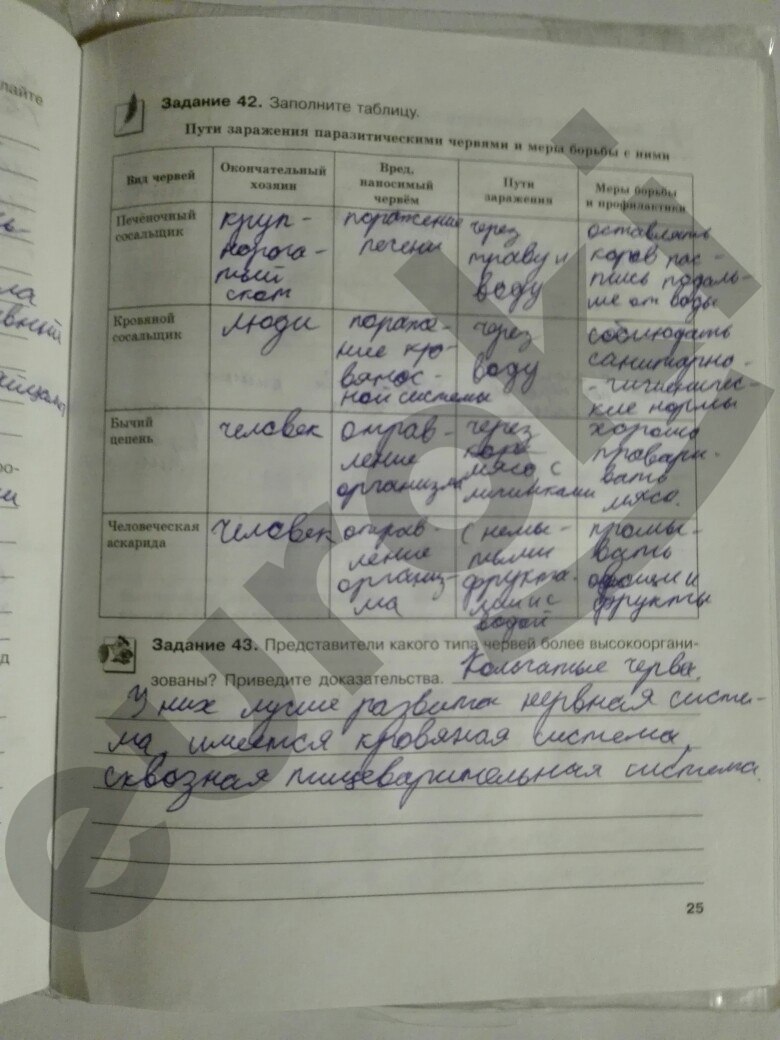 лайте
Задание 42. Заполните таблицу.
Пути заражения паразитическими червями и меры борьбы с ними
Вид червей
Окончательный
хозяин
Вред,
наносимый
червём
Пути
заражения
Меры борьбы
и профилактики
Печёночный
сосальщик
круп-
норога-
тый
скот
поражение
печени
через
траву и
воду
оставлять
коров пас-
тись подаль-
ше от воды
Кровяной
сосальщик
люди
пораже-
ние кро-
вянос-
ной системы
через
воду
соблюдать
санитарно-
-гигиеничес-
кие нормы
Бычий
цепень
человек
отрав-
ление
организма
через
мясо с
личинками
хорошо
провари-
вать
мясо.
Человеческая
аскарида
человек
отрав-
ление
организ-
ма
с немы-
тыми
фрукта-
ми и с
водой
промы-
вать
овощи и
фрукты
Задание 43. Представители какого типа червей более высокооргани-
зованы? Приведите доказательства. Кольчатые черви.
У них лучше развита нервная систе-
ма, имеется кровяная система,
сквозная пищеварительная система.
25
euroki